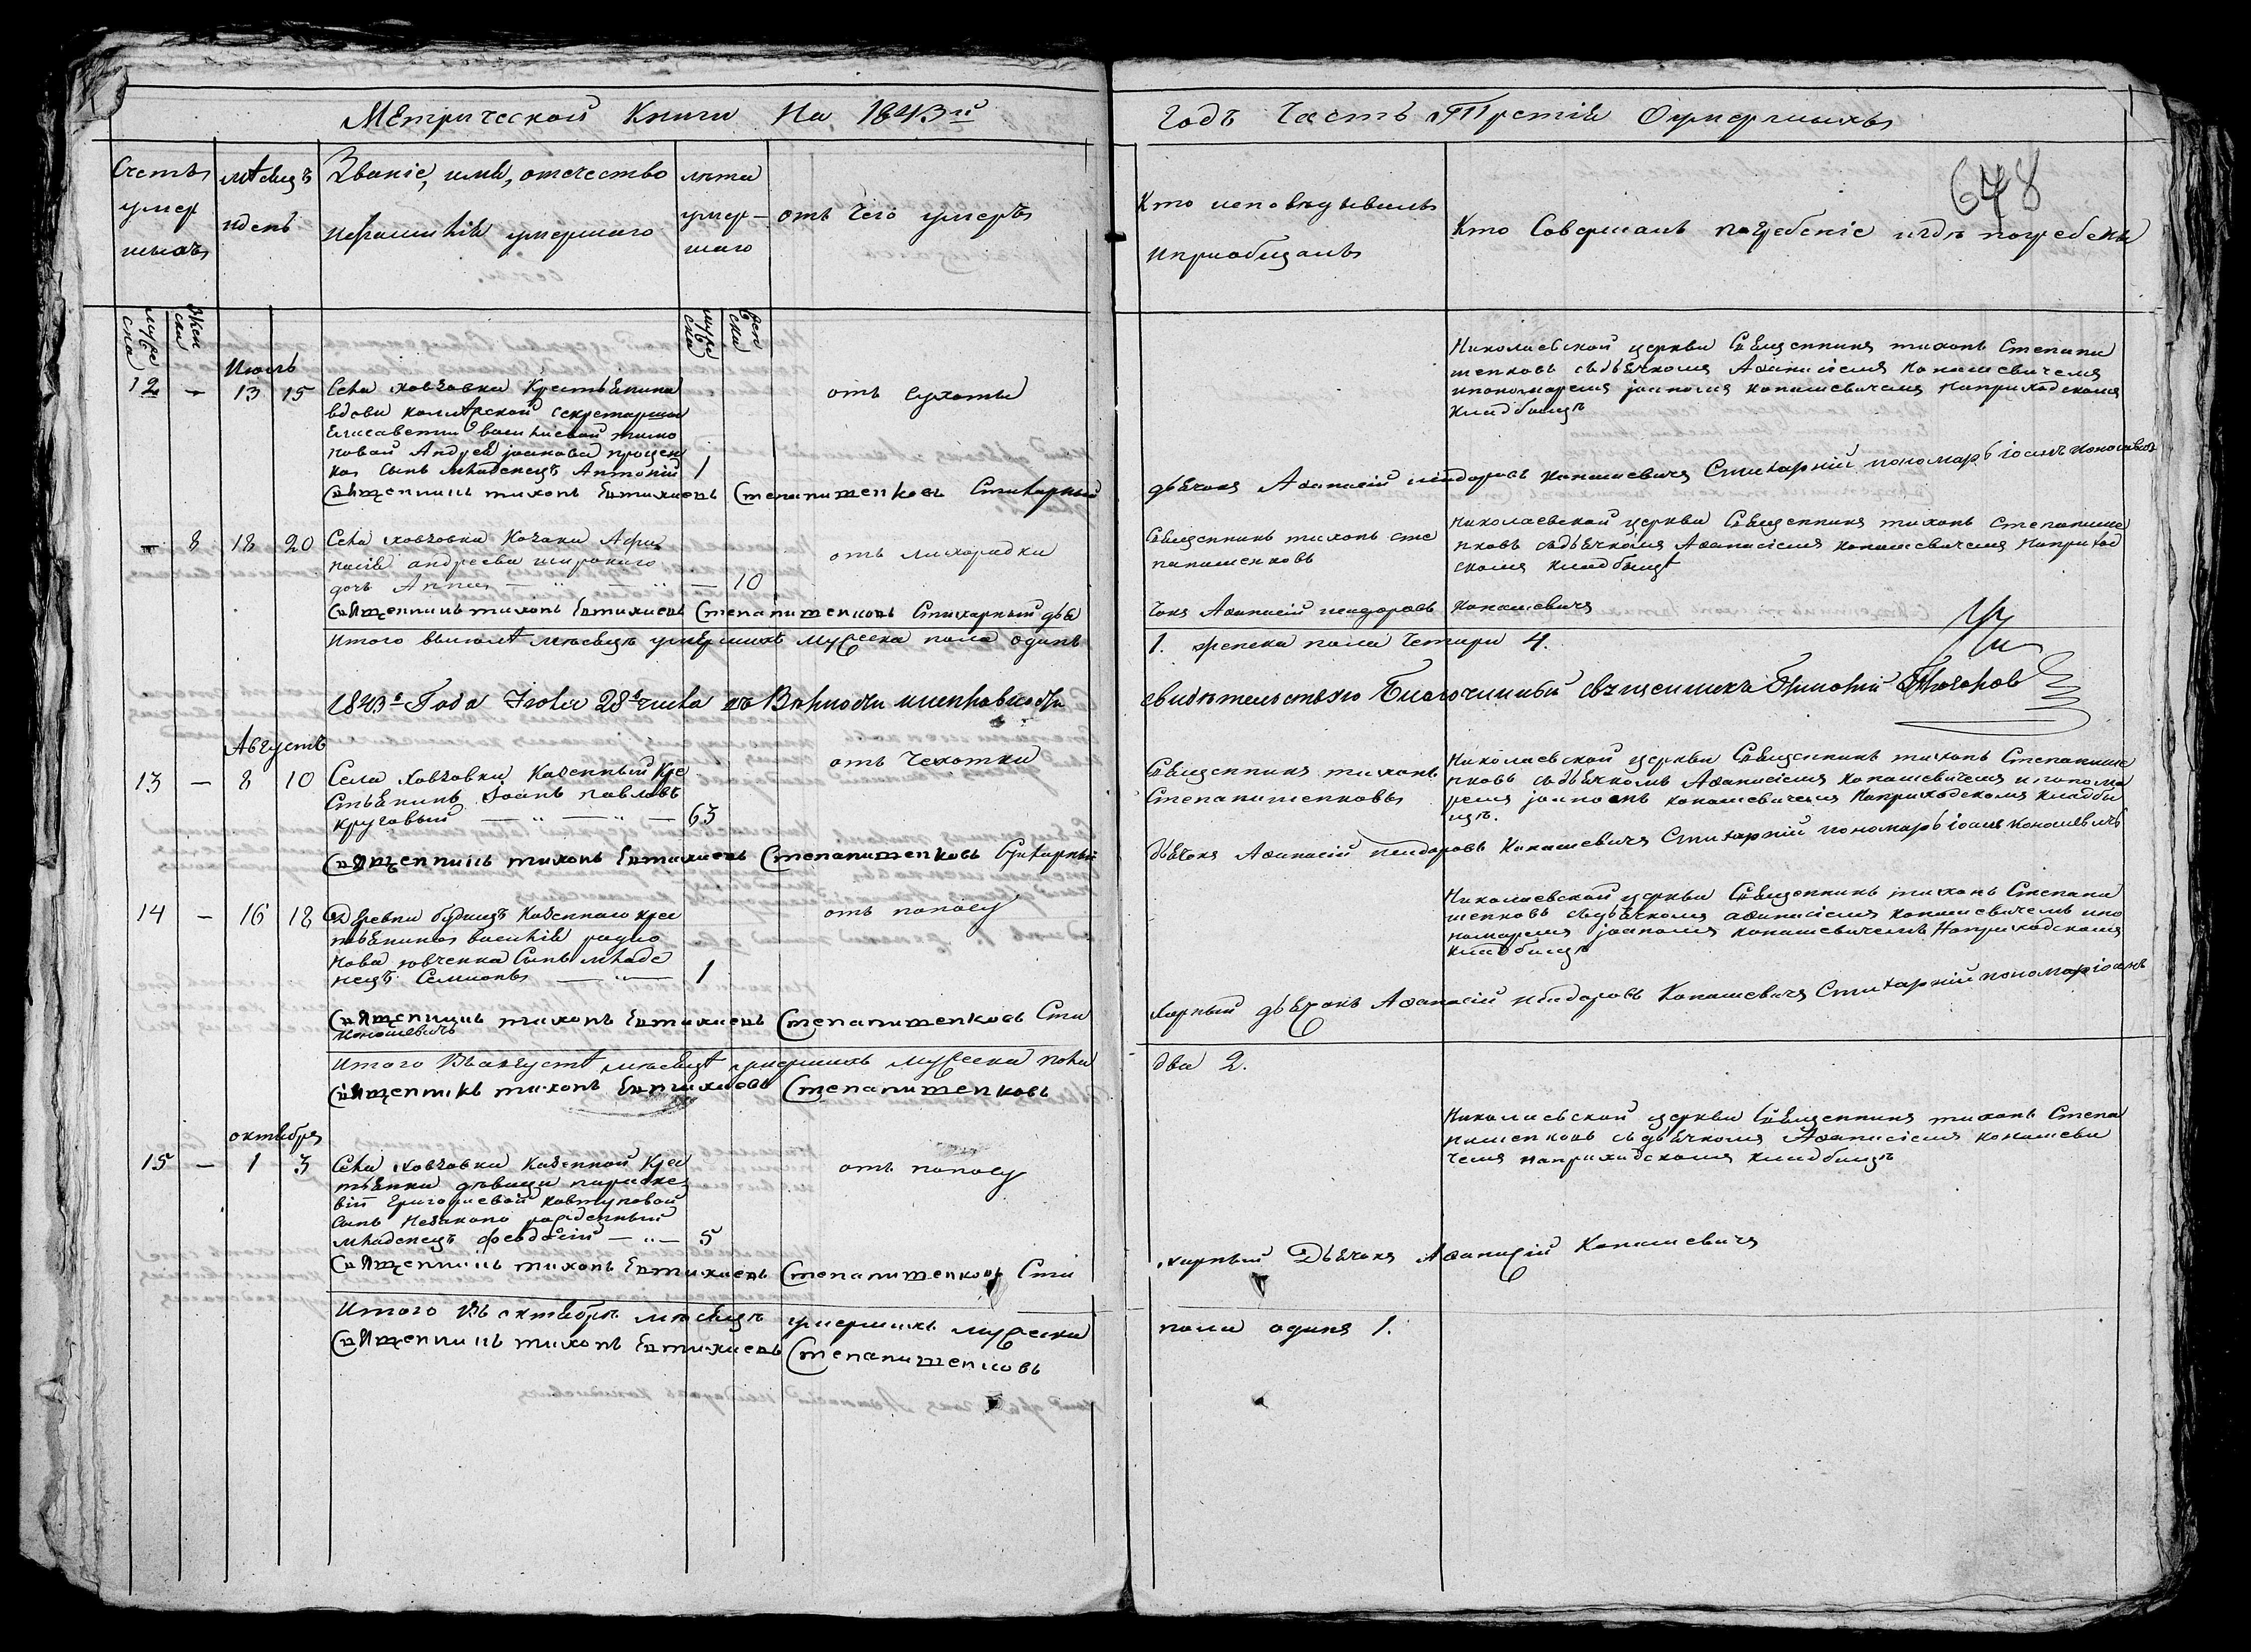 Метрической Книги На 1843й
Годъ Часть Третія Оумершихъ
648
Счетъ умер шихъ
мѣсяцъ и день
Званіе, имя, отечество и фамилія умершаго
лѣта умер-шаго
отъ чего умеръ
Кто исповѣдывалъ и приобщалъ
Кто Совершалъ погребеніе и гдѣ погребены
муже ска
женска
муже ска
женска
Июль
12 - 13 15
Села Ховзовки Крестьянина
вдовы колл Секретарши
Елисаветы Василиевой
Андрея Иоанова
сынъ младенецъ Антоній
1
отъ сухоты
Николаевской церкви Священникъ тихонъ Степани
шенковъ съ дьячкомъ Афанасіемъ Конашевичемъ
и пономаремъ іоаномъ конашевичемъ На приходскомъ
кладбищѣ
Священникъ тихонъ Евтихиевъ Степанишенковъ Стихарный
дьячокъ Афанасій Исидоровъ Конашевичъ Стихарній пономарь іоанъ Коношевичъ
- 8 18 20
Села Ховзовки Козака Афа
насія андреева широкаго
дочь Анна
- 10
отъ лихорадки
Священникъ тихонъ Сте
панишенковъ
Николаевской церкви Священникъ тихонъ Степанише
нковъ съ дьячкомъ Афанасіемъ конашевичемъ На приход
скомъ кладбищѣ
Священникъ тихонъ Евтихиевъ Степанишенковъ Стихарный дья
чокъ Афанасій исидоровъ Конашевичъ
Итого въ июлѣ мѣсяцѣ умершихъ мужеска пола одинъ
1. женска пола четыри 4.
1843го Года Июля 28го числа въ Вѣрности и исправности
свидѣтельствую Благочинный священникъ
Августъ
13 - 8 10
Села Ховзовки Казенный Кре
стьянинъ Іоанъ Павловъ
круговый
63
отъ Чехотки
Священникъ тихонъ
Степанишенковъ
Николаевской церкви Священникъ тихонъ Степанише
нковъ съ дьячкомъ Афанасіемъ конашевичемъ и понома
ремъ іоаномъ конашевичемъ На приходскомъ кладби
щѣ.
Священникъ тихонъ Евтихиевъ Степанишенковъ Стихарный
дьячокъ Афанасій Исидоровъ Конашевичъ Стихарній пономарь іоанъ Коношевичъ
14 - 16 18
Деревни будищъ Казеннаго крес
тьянина василія радио
нова ювченка Сынъ младе
нецъ Семионъ
1
отъ поносу
Николаевской церкви Священникъ тихонъ Степани
шенковъ съ дьячкомъ афанасіемъ конашевичемъ и по
номаремъ іоаномъ конашевичемъ На приходскомъ
кладбищѣ
Священникъ тихонъ Евтихиевъ Степанишенковъ Сти
харный дьячокъ Афанасій Исидоровъ Конашевичъ Стихарній пономарь іоанъ
Коношевичъ
Итого въ августѣ мѣсяцѣ умершихъ мужеска пола
два 2.
Священникъ тихонъ Евтихиевъ Степанишенковъ
октября
15 - 1 3
Села Ховзовки Казенной Крес
тьянки дѣвицы параске
віи Григориевой Ковтуновой
сынъ Незаконо рожденный
младенецъ феодосій
5
отъ поносу
Николаевской церкви Священникъ тихонъ Степа
нишенковъ съ дьячкомъ Афанасіемъ конашеви
чемъ на приходскомъ кладбищѣ
Священникъ тихонъ Евтихиевъ Степанишенковъ Сти
харный Дьячокъ Афанасій Конашевичъ
Итого въ октябрѣ мѣсяцѣ умершихъ мужеска
пола одинъ 1.
Священникъ тихонъ Евтихиевъ Степанишенковъ